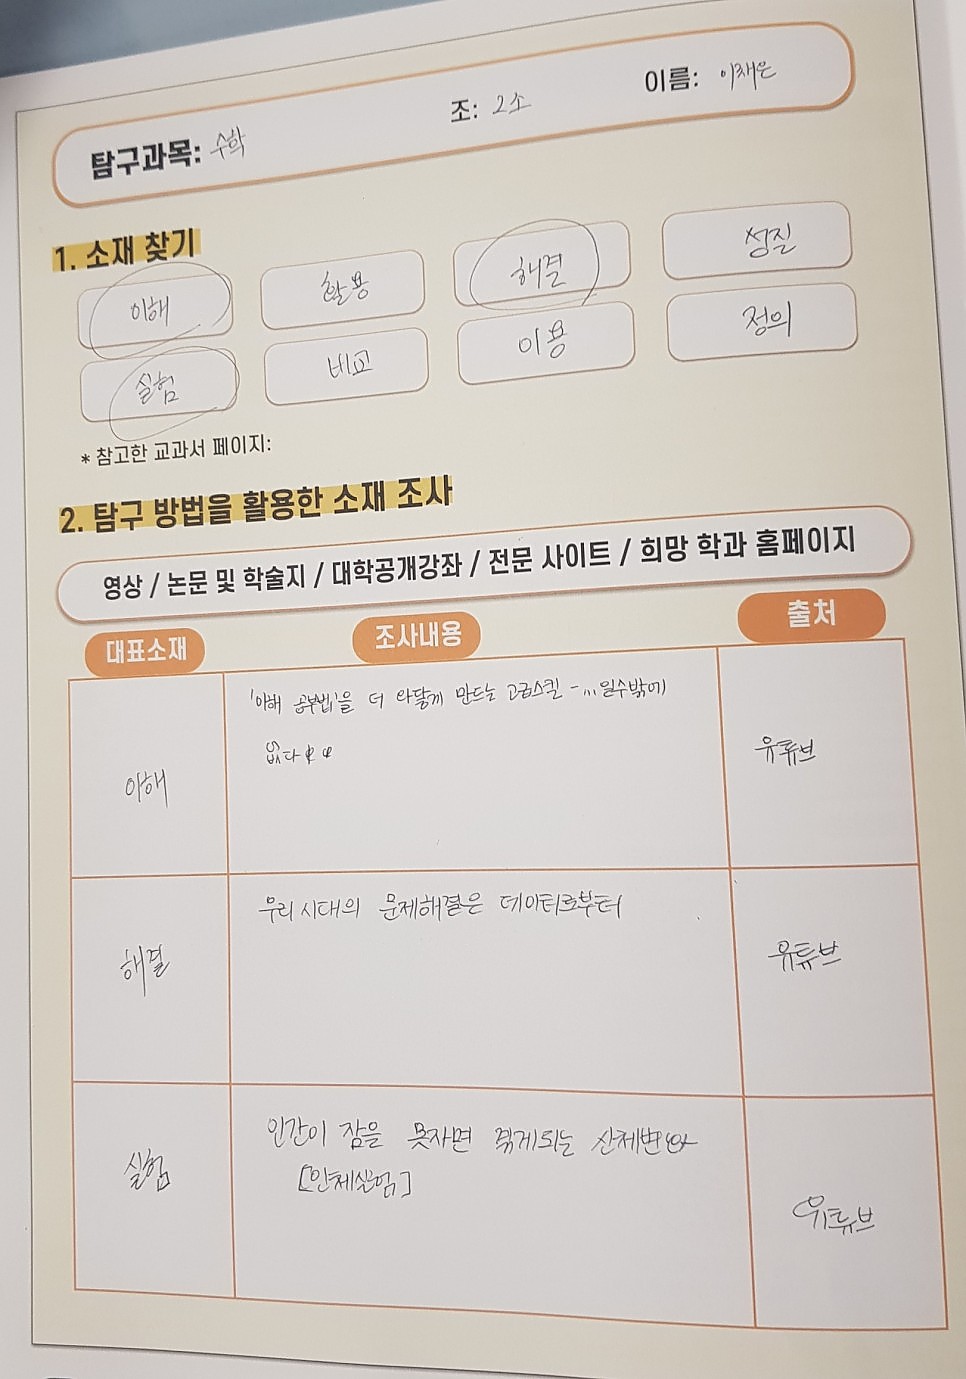 탐구과목: 수학 조: 2조 이름: 이재은
1. 소재 찾기
이해 활용 해결 성질
실험 비교 이용 정의
* 참고한 교과서 페이지:
2. 탐구 방법을 활용한 소재 조사
영상 / 논문 및 학술지 / 대학공개강좌 / 전문 사이트 / 희망 학과 홈페이지
대표소재 조사내용 출처
'이해 공부법'을 더 와닿게 만드는 고급스킬 - ... 일수밖에
없다
이해 유튜브
우리 시대의 문제해결은 데이터로부터
해결 유튜브
인간이 잠을 못자면 겪게되는 신체변화
[인체실험]
실험 유튜브